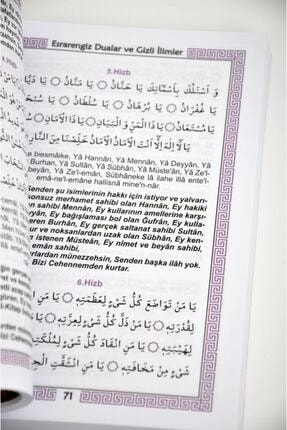 Esrarengiz Dualar ve Gizli İlimler
5.Hizb
وَ اَسْئَلُكَ بِاَسْمَائِكَ يَا حَنَّانُ ۞ يَا مَنَّانُ ۞ يَا دَيَّا
يَا غُفْرَانُ ۞ يَا بُرْهَانُ ۞ يَا سُلْطَانُ ۞ يَا سُبْحَا
يَا مُسْتَعَانُ ۞ يَا ذَا الْمَنِّ وَ الْبَيَانِ ۞ يَا ذَا الْاَمَانِ
يَا لَا اِلٰهَ اِلَّا اَنْتَ الْاَمَانُ الْاَمَانُ خَلِّصْنَا مِنَ النَّارِ
e biesmaike, Yâ Hannân, Yâ Mennân, Yâ Deyyân, Yâ
Burhan, Yâ Sultân, Yâ Sübhân, Yâ Müste'ân, Yâ Ze'l-
eyân, Yâ Ze'l-emân, Sübhâneke lâ ilahe illâ ente'l-
emâne'l-emâne hallisnâ mine'n-nâr.
Senden şu isimlerinin hakkı için istiyor ve yalvarı-
sonsuz merhamet sahibi olan Hannân, Ey hakiki
n sahibi Mennân, Ey kullarının amellerine karşı-
eyân, Ey bağışlaması bol olan Gufrân, Ey kulla-
eren Burhan, Ey gerçek saltanat sahibi Sultân,
ur ve noksanlardan uzak olan Sübhân, Ey ken-
istenen Müsteân, Ey nimet ve beyân sahibi,
emân sahibi,
rlardan münezzehsin, Senden başka ilâh yok.
Bizi Cehennemden kurtar.
6.Hizb
يَا مَنْ تَوَاضَعَ كُلُّ شَىْءٍ لِعَظَمَتِهِ ۞ يَا مَنِ
لِقُدْرَتِهِ ۞ يَا مَنْ ذَلَّ كُلُّ شَىْءٍ لِعِزَّتِهِ ۞ يَا مَنْ
لِهَيْبَتِهِ ۞ يَا مَنِ انْقَادَ كُلُّ شَىْءٍ لِمُلْكَتِهِ
شَىْءٍ مِنْ مَخَافَتِهِ ۞ يَا مَنِ انْشَقَّتِ الْجِ
71